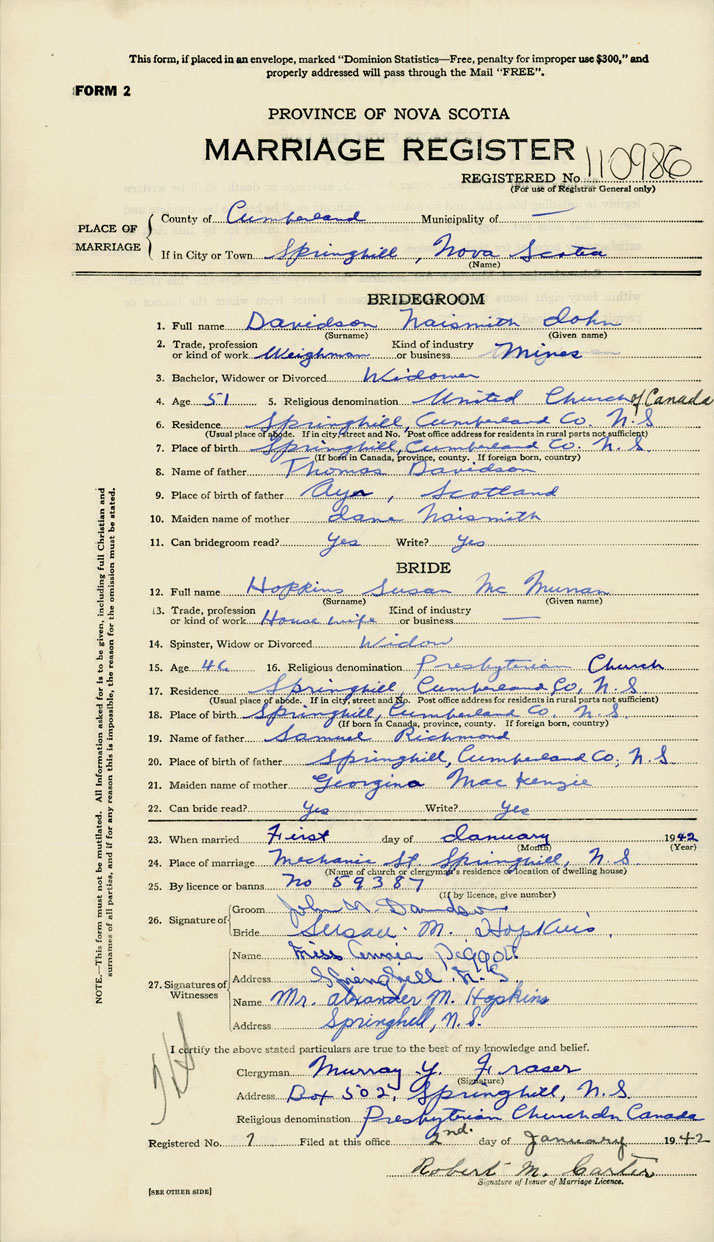 This form, if placed in an envelope, marked "Dominion Statistics—Free, penalty for improper use $300," and
properly addressed will pass through the Mail "FREE".
FORM 2
PROVINCE OF NOVA SCOTIA
MARRIAGE REGISTER
REGISTERED No. 110986
(For use of Registrar General only)
PLACE OF MARRIAGE
County of Cumberland Municipality of —
If in City or Town Springhill, Nova Scotia
(Name)
BRIDEGROOM
1. Full name Davidson Naismith John
(Surname) (Given name)
2. Trade, profession or kind of work Weighman Kind of industry or business Mines
3. Bachelor, Widower or Divorced Widower
4. Age 51 5. Religious denomination United Church of Canada
6. Residence Springhill, Cumberland Co. N.S
(Usual place of abode. If in city, street and No. Post office address for residents in rural parts not sufficient)
7. Place of birth Springhill, Cumberland Co. N.S.
(If born in Canada, province, county. If foreign born, country)
8. Name of father Thomas Davidson
9. Place of birth of father Ayr, Scotland
10. Maiden name of mother Jane Naismith
11. Can bridegroom read? Yes Write? Yes
BRIDE
12. Full name Hopkins Susan Mc Murran
(Surname) (Given name)
13. Trade, profession or kind of work House wife Kind of industry or business —
14. Spinster, Widow or Divorced Widow
15. Age 46 16. Religious denomination Presbyterian Church
17. Residence Springhill, Cumberland Co, N.S
(Usual place of abode. If in city, street and No. Post office address for residents in rural parts not sufficient)
18. Place of birth Springhill, Cumberland Co. N.S.
(If born in Canada, province, county. If foreign born, country)
19. Name of father Samuel Richmond
20. Place of birth of father Springhill, Cumberland Co; N.S.
21. Maiden name of mother Georgina MacKenzie
22. Can bride read? Yes Write? Yes
23. When married First day of January 1942
(Month) (Year)
24. Place of marriage Mechanic St Springhill, N.S
(Name of church or clergyman's residence or location of dwelling house)
25. By licence or banns No 59387
(If by licence, give number)
26. Signature of
Groom John N. Davidson
Bride Susan M. Hopkins
27. Signatures of Witnesses
Name Miss Annie Piggott
Address Springhill N.S.
Name Mr. Alexander M. Hopkins
Address Springhill, N.S.
I certify the above stated particulars are true to the best of my knowledge and belief.
Clergyman Murray Y. Fraser
(Signature)
Address Box 502, Springhill, N.S
Religious denomination Presbyterian Church In Canada
Registered No. 1 Filed at this office 2nd. day of January 1942
Robert M. Carter
Signature of Issuer of Marriage Licence.
[SEE OTHER SIDE]
NOTE.—This form must not be mutilated. All information asked for is to be given, including full Christian and
surnames of all parties, and if for any reason this is impossible, the reason for the omission must be stated.